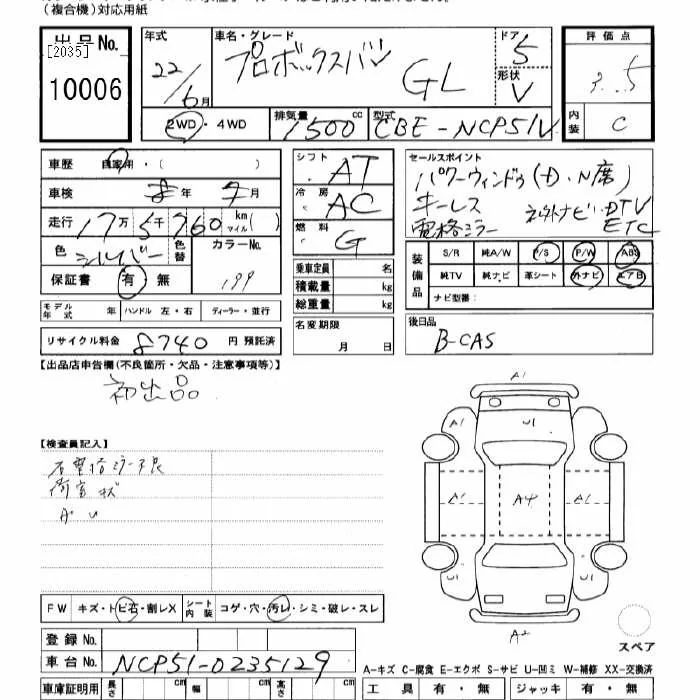 (複合機)対応用紙
出品No. [2035] 10006
年式 22/6月
車名・グレード プロボックスバン GL
ドア 5
形状 V
評価点 3.5
内装 C
2WD・4WD
排気量 1500 cc
型式 CBE-NCP51V
車歴 自家用・( )
車検 年 月
走行 17万5千760 km マイル( )
色 シルバー 色替 カラーNo. 199
保証書 有・無
モデル年式 年 ハンドル 左・右 ディーラー・並行
リサイクル料金 8740 円 預託済
シフト AT
冷房 AC
燃料 G
乗車定員 名
積載量 kg
総重量 kg
名変期限 月 日
セールスポイント
パワーウィンドウ(D・N席)
キーレス 社外ナビ・DTV
電格ミラー ETC
装備品 S/R 純A/W P/S P/W ABS
純TV 純ナビ 革シート 外ナビ エアB
ナビ型番:
後日品
B-CAS
【出品店申告欄(不良箇所・欠品・注意事項等)】
初出品
【検査員記入】
右電格ミラー不良
荷室
A U
FW キズ・トビ石・割レX シート内装 コゲ・穴・汚レ・シミ・破レ・スレ
登録No.
車台No. NCP51-0235129
車庫証明用 長さ cm 幅 cm 高さ cm
A1
U1
A1 A4 A1
U1 U1
A2
スペア
A-キズ C-腐食 E-エクボ S-サビ U-凹ミ W-補修 XX-交換済
工具 有・無 ジャッキ 有・無